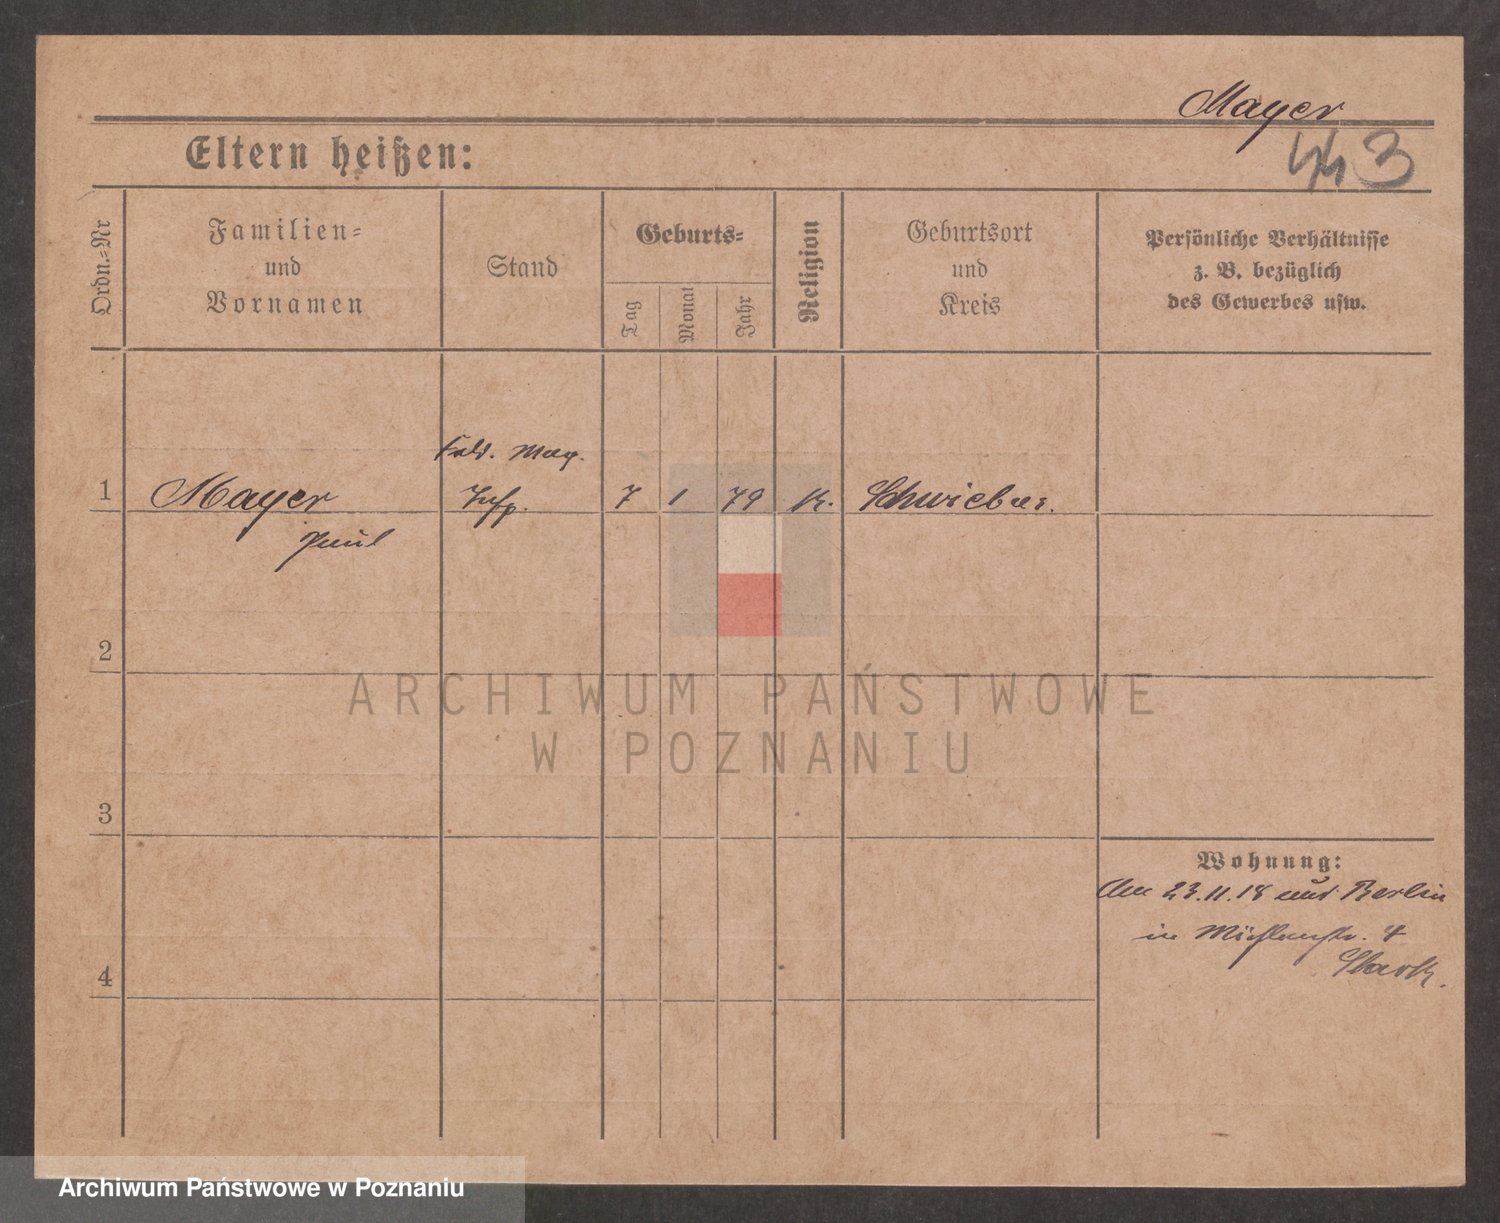 Mayer
443
Eltern heißen:
Ordn.=Nr
Familien=
und
Vornamen
Stand
Geburts=
Tag
Monat
Jahr
Religion
Geburtsort
und
Kreis
Persönliche Verhältnisse
z. B. bezüglich
des Gewerbes usw.
Feld. Mag.
1 Mayer Insp. 7 1 79 k. Schwiebus.
Paul
2
3
4
Wohnung:
Am 23.11.18 aus Berlin
in Mühlenstr. 4
Stark.
ARCHIWUM PAŃSTWOWE
W POZNANIU
Archiwum Państwowe w Poznaniu